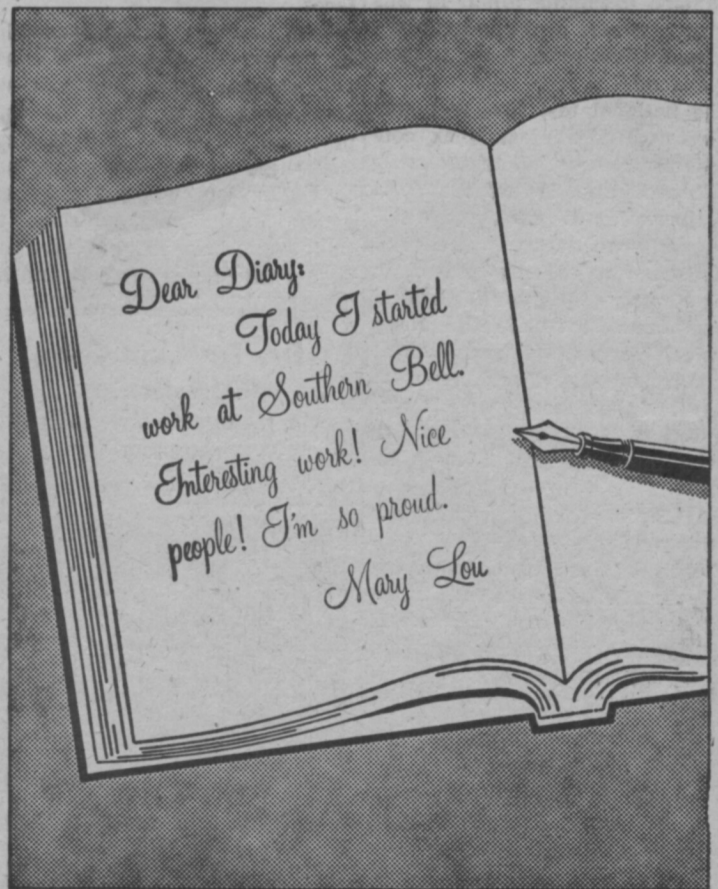 Dear Diary:
Today I started
work at Southern Bell.
Interesting work! Nice
people! I'm so proud.
Mary Lou